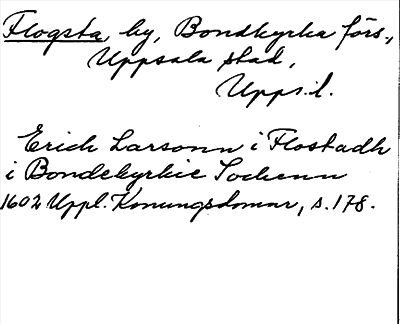 Flogsta, by, Bondkyrka förs.,
Uppsala stad,
Upps.l.
Erich Larsonn i Flostadh
i Bondekyrkie Sochenn
1602 Uppl. Konungsdomar, s. 178.